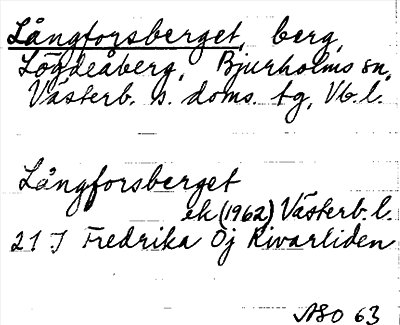 Långforsberget, berg,
Lögdeåberg, Bjurholms sn,
Västerb. s. doms. tg, Vb. l.
Långforsberget
ek (1962) Västerb. l.
21 J Fredrika Öj Kivarliden
ASO 63